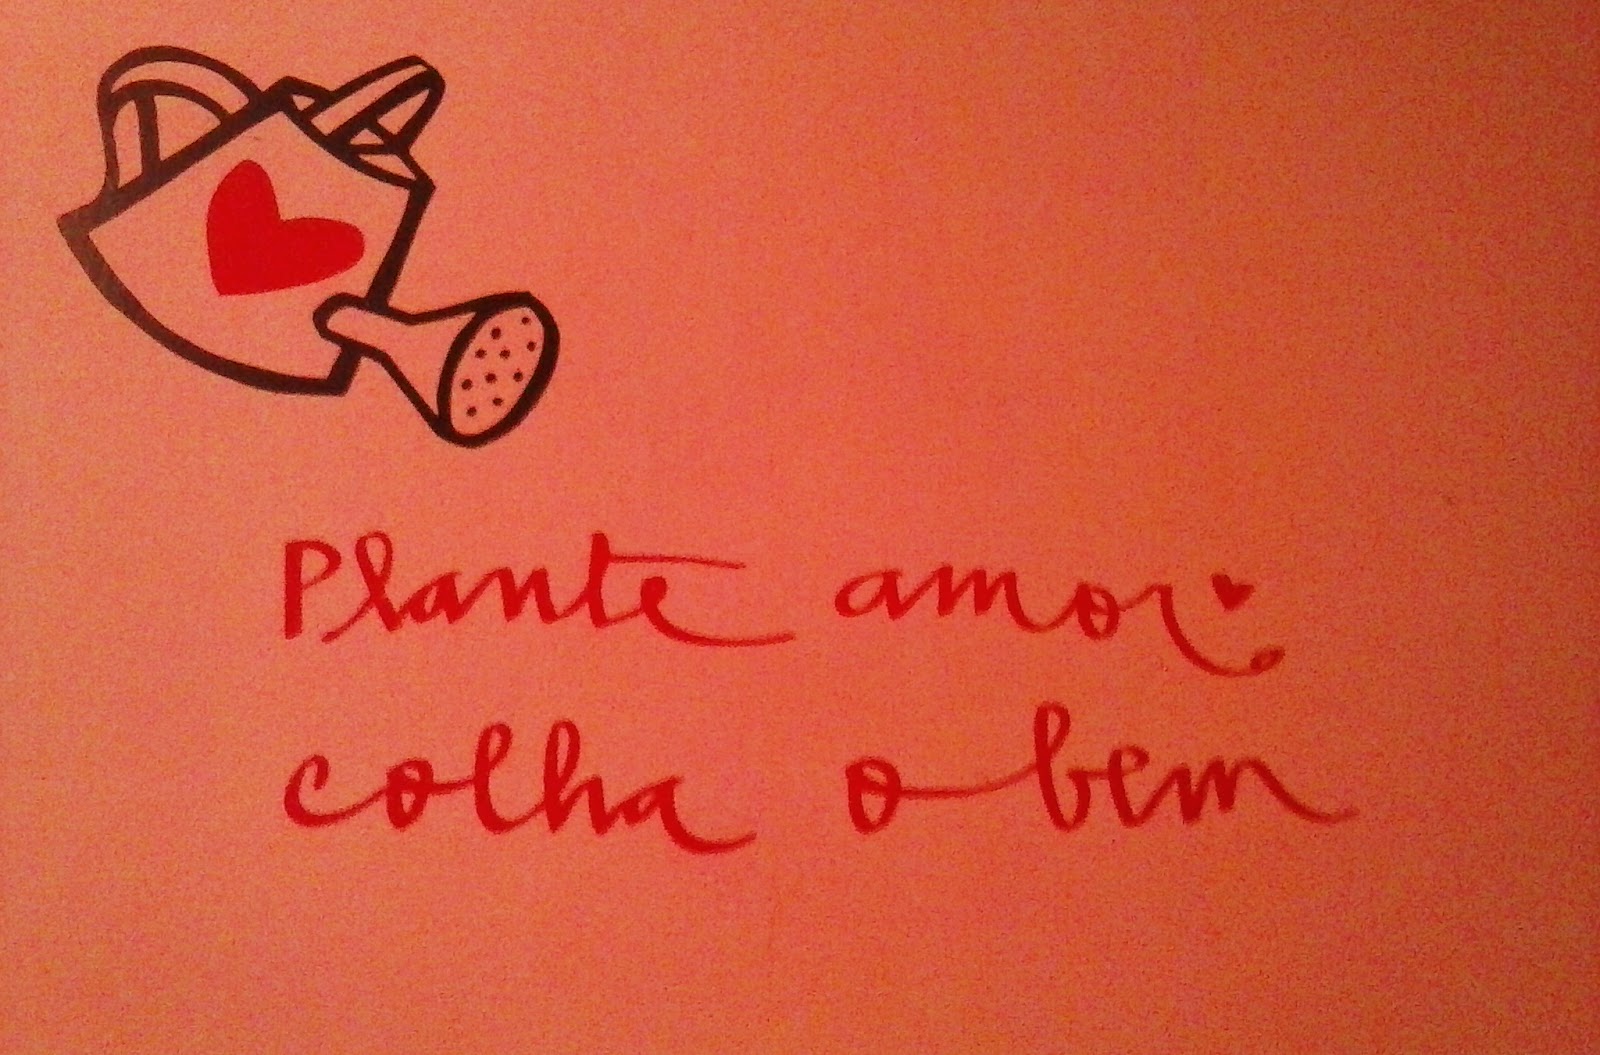 Plante amor
colha o bem